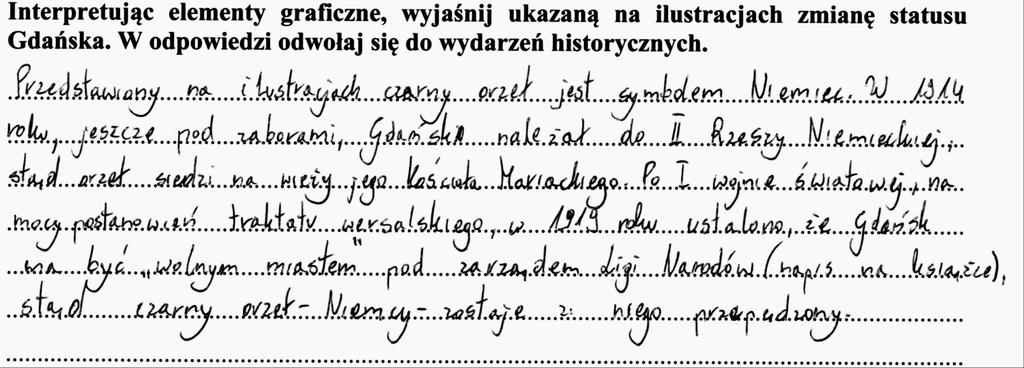 Interpretując elementy graficzne, wyjaśnij ukazaną na ilustracjach zmianę statusu
Gdańska. W odpowiedzi odwołaj się do wydarzeń historycznych.
Przedstawiony na ilustracjach czarny orzeł jest symbolem Niemiec. W 1914
roku, jeszcze pod zaborami, Gdańsk należał do II Rzeszy Niemieckiej,
stąd orzeł siedzi na wieży jego Kościoła Mariackiego. Po I wojnie światowej, na
mocy postanowień traktatu wersalskiego, w 1919 roku ustalono, że Gdańsk
ma być „wolnym miastem" pod zarządem Ligi Narodów (napis na książce),
stąd czarny orzeł - Niemcy - zostaje z niego przepędzony.